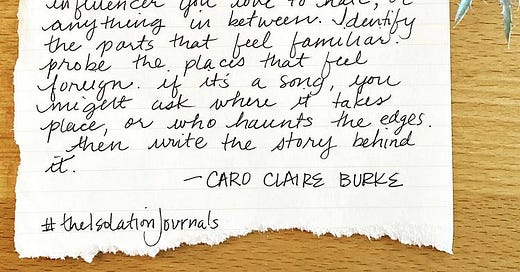 influencer you love to hate, or
anything in between. Identify
the parts that feel familiar.
probe the places that feel
foreign. if it's a song, you
might ask where it takes
place, or who haunts the edges.
then write the story behind
it.
—CARO CLAIRE BURKE
#theIsolationJournals